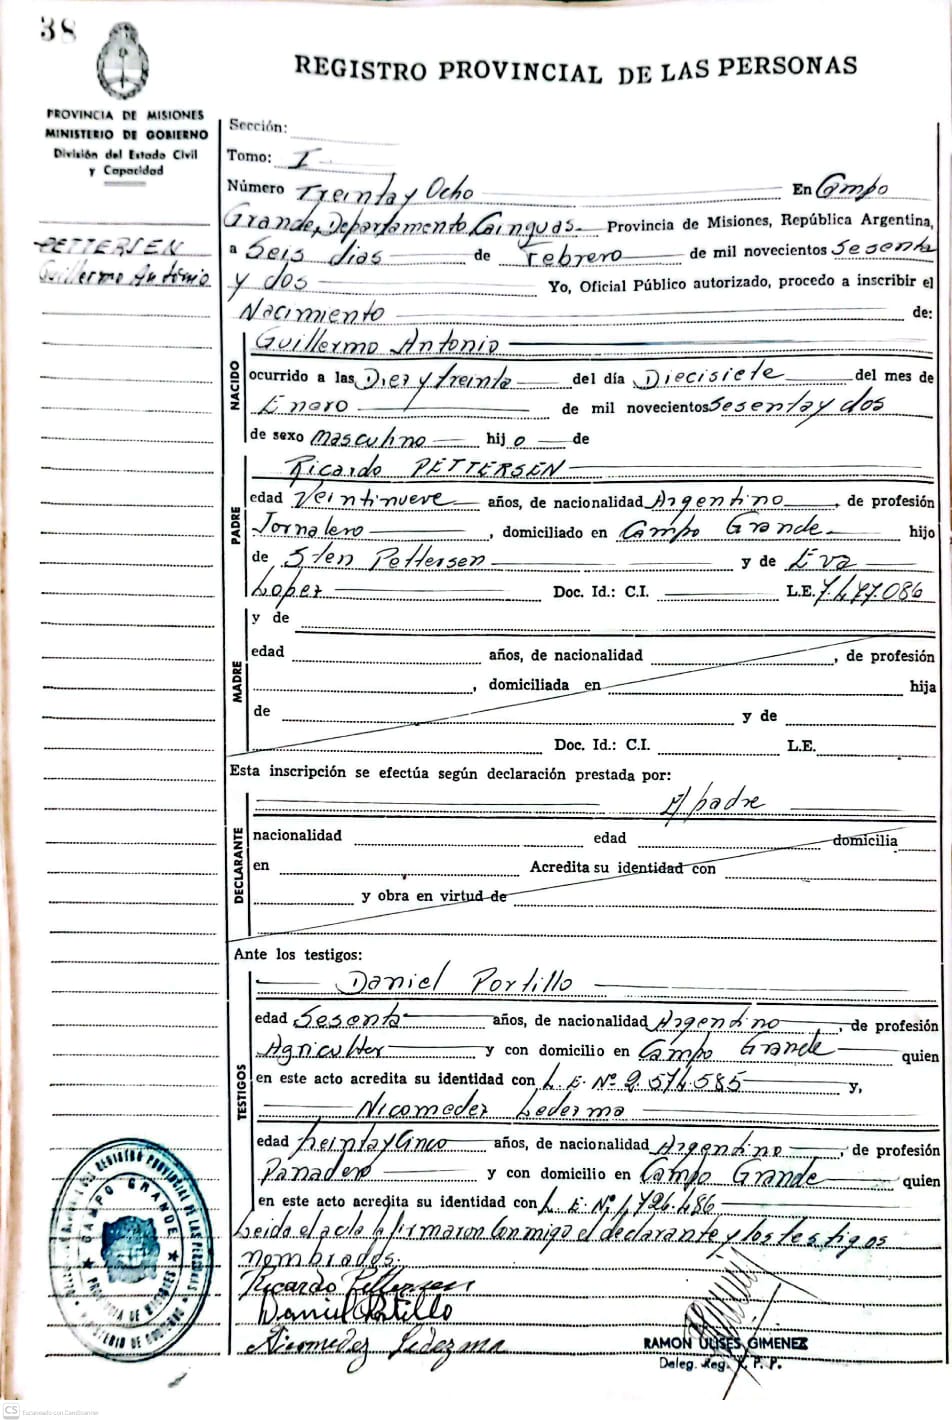 38
REGISTRO PROVINCIAL DE LAS PERSONAS
PROVINCIA DE MISIONES
MINISTERIO DE GOBIERNO
División del Estado Civil
y Capacidad
PETTERSEN
Guillermo Antonio
Sección:
Tomo: I
Número Treinta y Ocho En Campo
Grande, Departamento Cainguas- Provincia de Misiones, República Argentina,
a Seis dias de Febrero de mil novecientos Sesenta
y dos Yo, Oficial Público autorizado, procedo a inscribir el
Nacimiento de:
NACIDO
Guillermo Antonio
ocurrido a las Diez y treinta del día Diecisiete del mes de
Enero de mil novecientos Sesenta y dos
de sexo Masculino hijo de
PADRE
Ricardo PETTERSEN
edad Veintinueve años, de nacionalidad Argentino, de profesión
Jornalero, domiciliado en Campo Grande- hijo
de Sten Pettersen y de Eva
Lopez Doc. Id.: C.I. L.E. 7.477.086
MADRE
y de
edad años, de nacionalidad , de profesión
, domiciliada en hija
de y de
Doc. Id.: C.I. L.E.
Esta inscripción se efectúa según declaración prestada por:
El padre
DECLARANTE
nacionalidad edad domicilia
en Acredita su identidad con
y obra en virtud de
Ante los testigos:
TESTIGOS
Daniel Portillo
edad Sesenta años, de nacionalidad Argentino, de profesión
Agricultor y con domicilio en Campo Grande quien
en este acto acredita su identidad con L.E. Nº 2.574.585 y,
Nicomedez Ledezma
edad treinta y Cinco años, de nacionalidad Argentino, de profesión
Panadero y con domicilio en Campo Grande quien
en este acto acredita su identidad con L.E. Nº 1.726.486
Leida el acta la firmaron conmigo el declarante y los testigos
nombrados.
Ricardo Pettersen
Daniel Portillo
Nicomedez Ledezma
RAMON ULISES GIMENEZ
Deleg. Reg. P. P.
REGISTRO PROVINCIAL DE LAS PERSONAS
CAMPO GRANDE
PROVINCIA DE MISIONES
MINISTERIO DE GOBIERNO
CS Escaneado con CamScanner